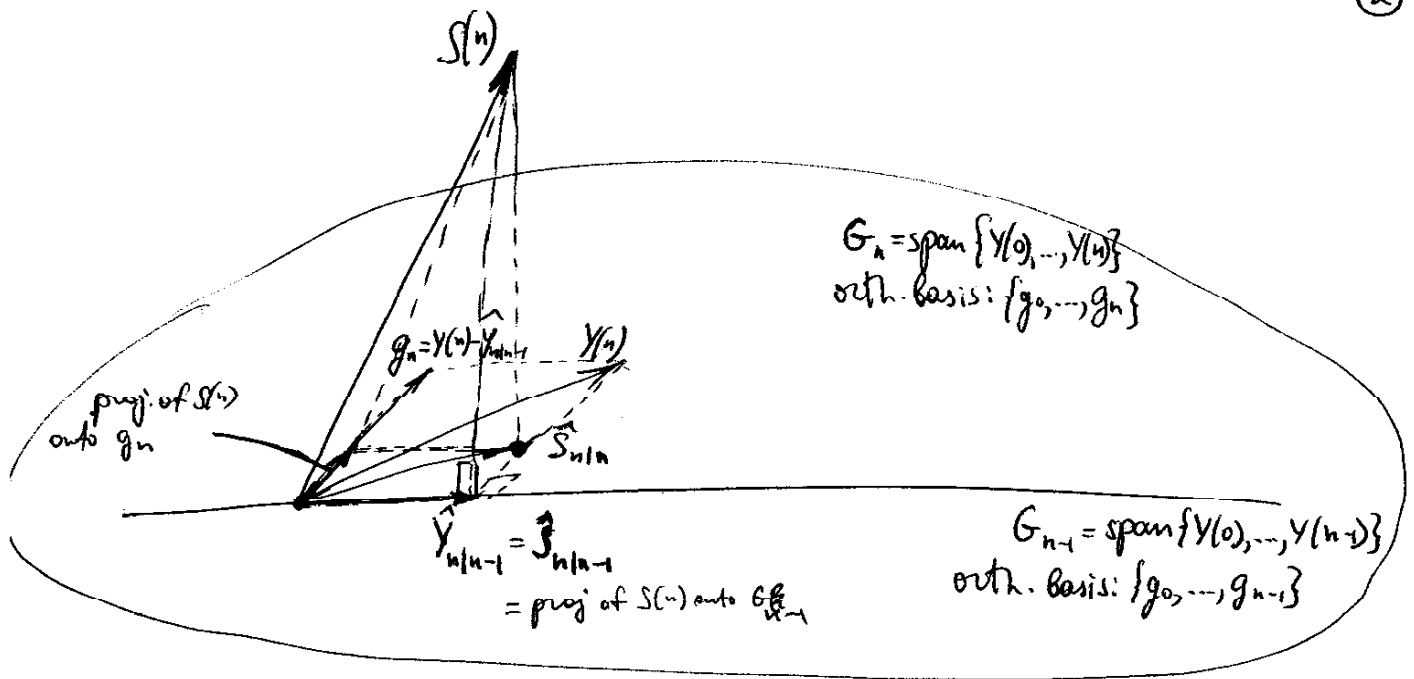 ②
S(n)
G_n = span {Y(0), ..., Y(n)}
orth. basis: {g_0, ..., g_n}
g_n = Y(n) - Ŷ_{n|n-1}
Y(n)
proj. of S(n)
onto g_n
Ŝ_{n|n}
Ŷ_{n|n-1} = Ŝ_{n|n-1}
= proj of S(n) onto G_{n-1}
G_{n-1} = span{Y(0), ..., Y(n-1)}
orth. basis: {g_0, ..., g_{n-1}}